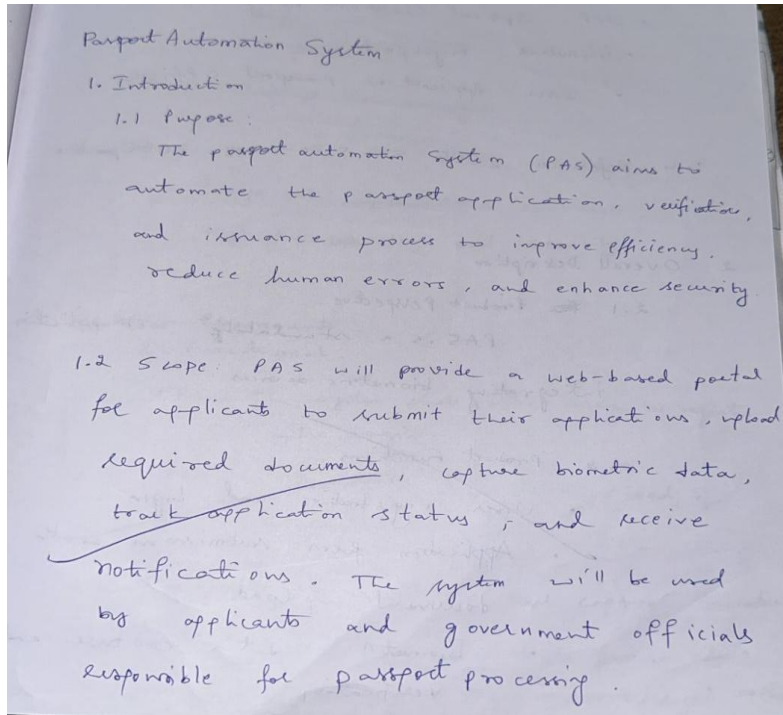 Passport Automation System
1. Introduction
1.1 Pupose :
The passport automation system (PAS) aims to
automate the passport application, verifiation,
and issuance process to improve efficiency.
reduce human errors, and enhance security.
1.2 Scope: PAS will provide a web-based portal
for applicants to submit their applications, upload
required documents, capture biometric data,
track application status, and receive
notifications. The system will be used
by applicants and government officials
responsible for passport processing.